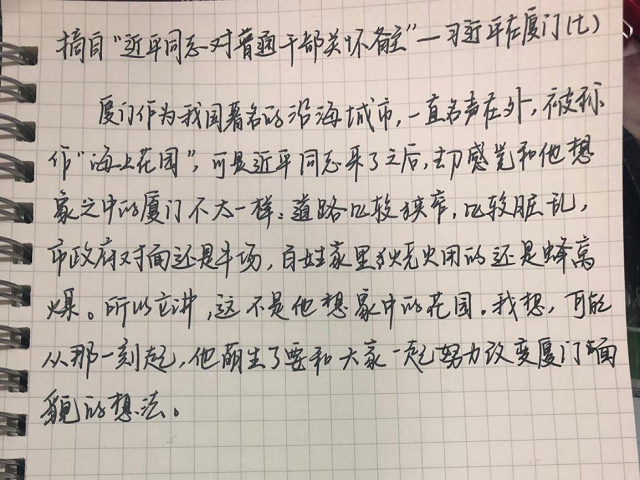 摘自“近平同志对普通干部关怀备至”—习近平在厦门(七)
厦门作为我国著名的沿海城市,一直名声在外,被称
作“海上花园”,可是近平同志来了之后,却感觉和他想
象之中的厦门不太一样:道路比较狭窄,比较脏乱,
市政府对面还是牛场,百姓家里烧火用的还是蜂窝
煤。所以立讲,这不是他想象中的花园。我想,可能
从那一刻起,他萌生了要和大家一起努力改变厦门面
貌的想法。